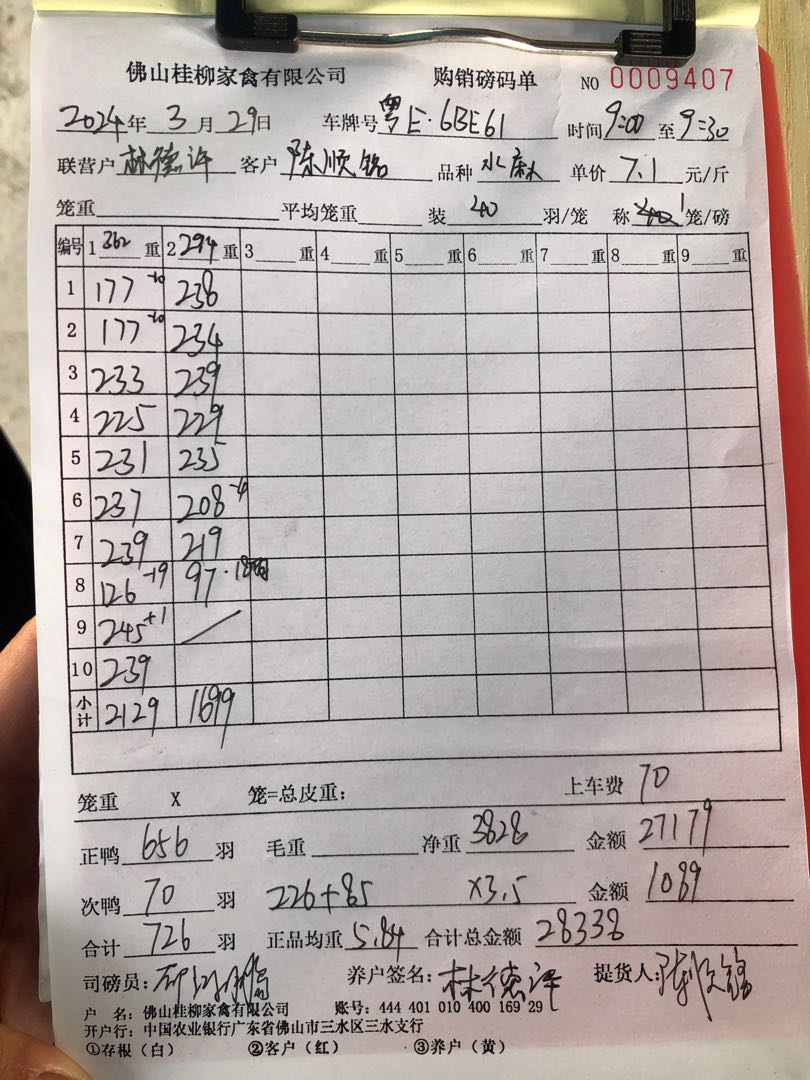 佛山桂柳家禽有限公司 购销磅码单 NO 0009407
2024年 3 月 29日 车牌号 粤E·6BE61 时间 9:00 至 9:30
联营户 林德许 客户 陈顺铭 品种 水麻 单价 7.1 元/斤
笼重 平均笼重 装 40 羽/笼 称 1 笼/磅
编号 1 362 重 2 294 重 3 重 4 重 5 重 6 重 7 重 8 重 9 重
1 177 -10 238
2 177 -10 234
3 233 239
4 225 229
5 231 235
6 237 208
7 239 219
8 126 -19 97
9 245 +1 /
10 239
小计 2129 1699
笼重 X 笼=总皮重: 上车费 70
正鸭 656 羽 毛重 净重 3828 金额 27179
次鸭 70 羽 226+85 ×3.5 金额 1089
合计 726 羽 正品均重 5.84 合计总金额 28338
司磅员: 养户签名: 林德许 提货人:
户 名: 佛山桂柳家禽有限公司 账号: 444 401 010 400 169 29
开户行: 中国农业银行广东省佛山市三水区三水支行
①存根(白) ②客户(红) ③养户(黄)